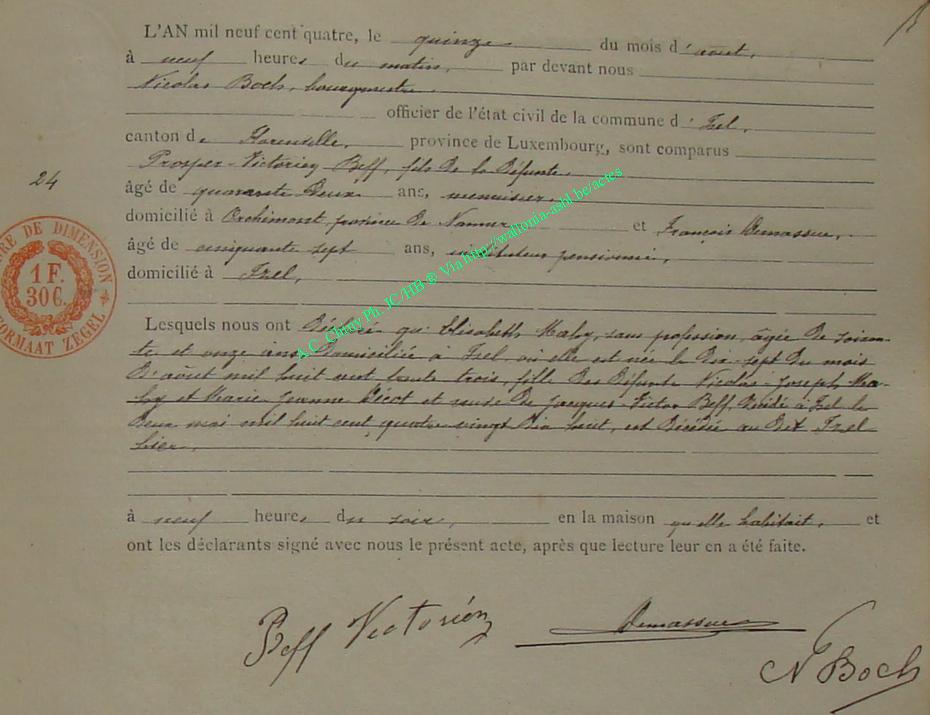 L'AN mil neuf cent quatre, le quinze du mois d'août,
à neuf heures du matin, par devant nous
Nicolas Boch, bourgmestre,
officier de l'état civil de la commune d'Izel,
canton de Florenville, province de Luxembourg, sont comparus
Prosper-Victorien Beff, fils de la défunte,
24
âgé de quarante deux ans, menuisier,
domicilié à Orchimont province de Namur et François Demassue,
âgé de cinquante sept ans, instituteur pensionné,
domicilié à Izel,
Lesquels nous ont déclaré que Elisabeth Mahy, sans profession, âgée de soixan-
te et onze ans domiciliée à Izel, où elle est née le dix-sept du mois
d'août mil huit cent trente trois, fille des défunts Nicolas-Joseph Ma-
hy et Marie Jeanne et veuve de Jacques-Victor Beff, décédé à Izel le
deux mai mil huit cent quatre vingt dix huit, est décédée au dit Izel
hier,
à neuf heures du soir, en la maison qu'elle habitait, et
ont les déclarants signé avec nous le présent acte, après que lecture leur en a été faite.
Beff Victorien
Demassue
N Boch
TIMBRE DE DIMENSION
1 F.
30 C.
FORMAAT ZEGEL
A.C. Chiny Ph. JC/HB ® Via http://wallonia-asbl.be/actes